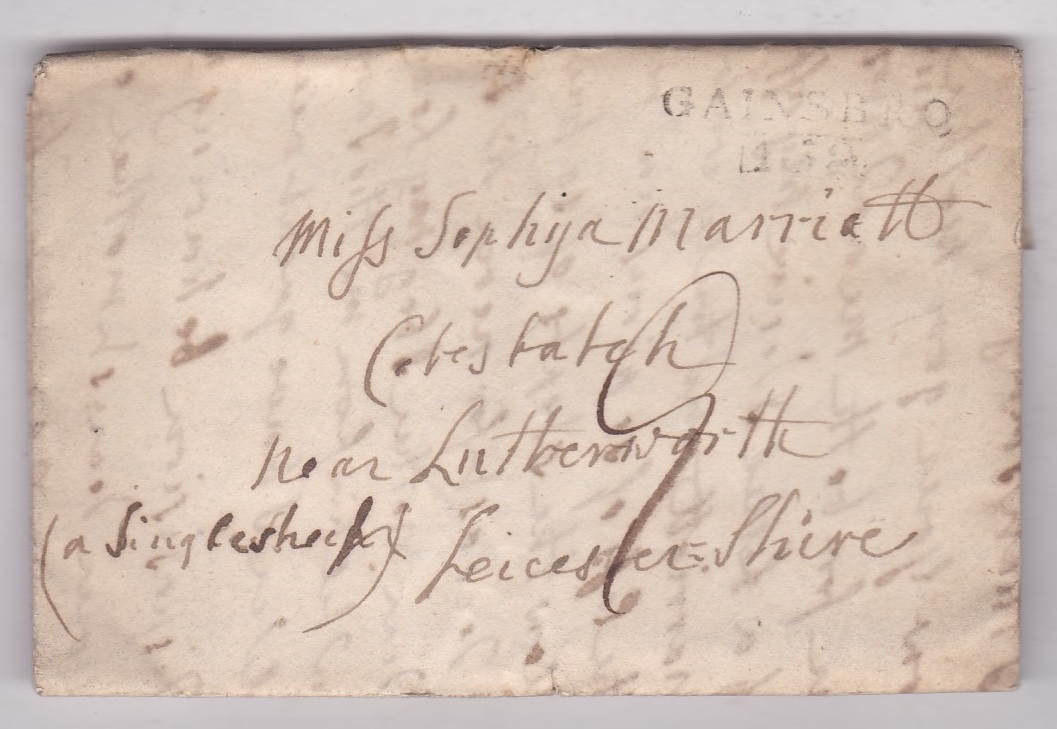 GAINSBRO
Miss Sophya Marriatt
Cotesbatch
near Lutherworth
(a Single sheet)
Leicester=Shire